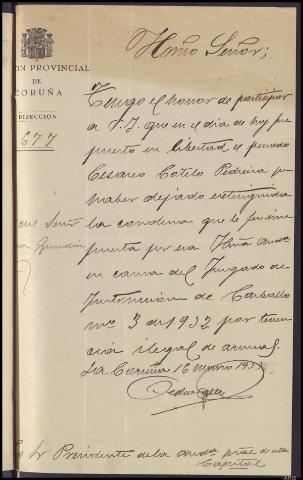 Ilmo Señor;
ON PROVINCIAL
DE
CORUÑA
DIRECCION
677
Tengo el honor de participar
a V.I. que en el dia de hoy fue
puesto en libertad el penado
Cesareo Cotelo Pedreira por
haber dejado extinguida
la condena que le fue im
puesta por esa Ilma Auda
en causa del Juzgado de
Instruccion de Carballo
nº 3 de 1932 por tenen
cia ilegal de armas.
La Coruña 16 1933
Sr Presidente de la Auda de esta
Capital